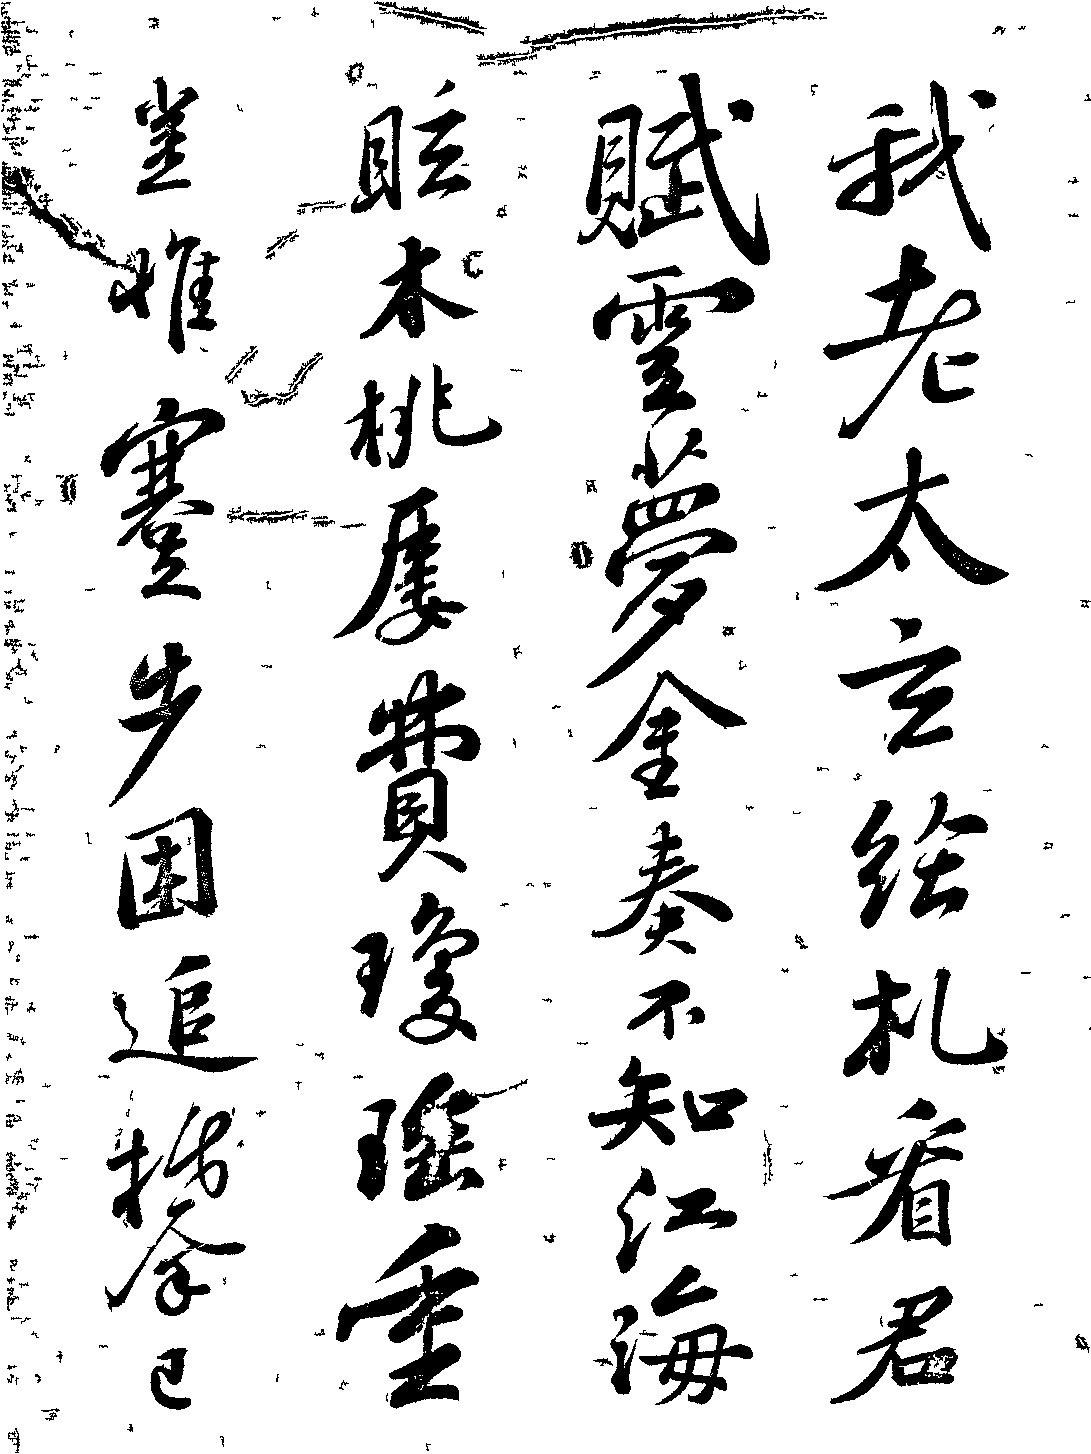 我老太玄給札看君
賦雲夢金奏不知江海
眩木桃屢費瓊瑤重
豈惟蹇步困追攀已